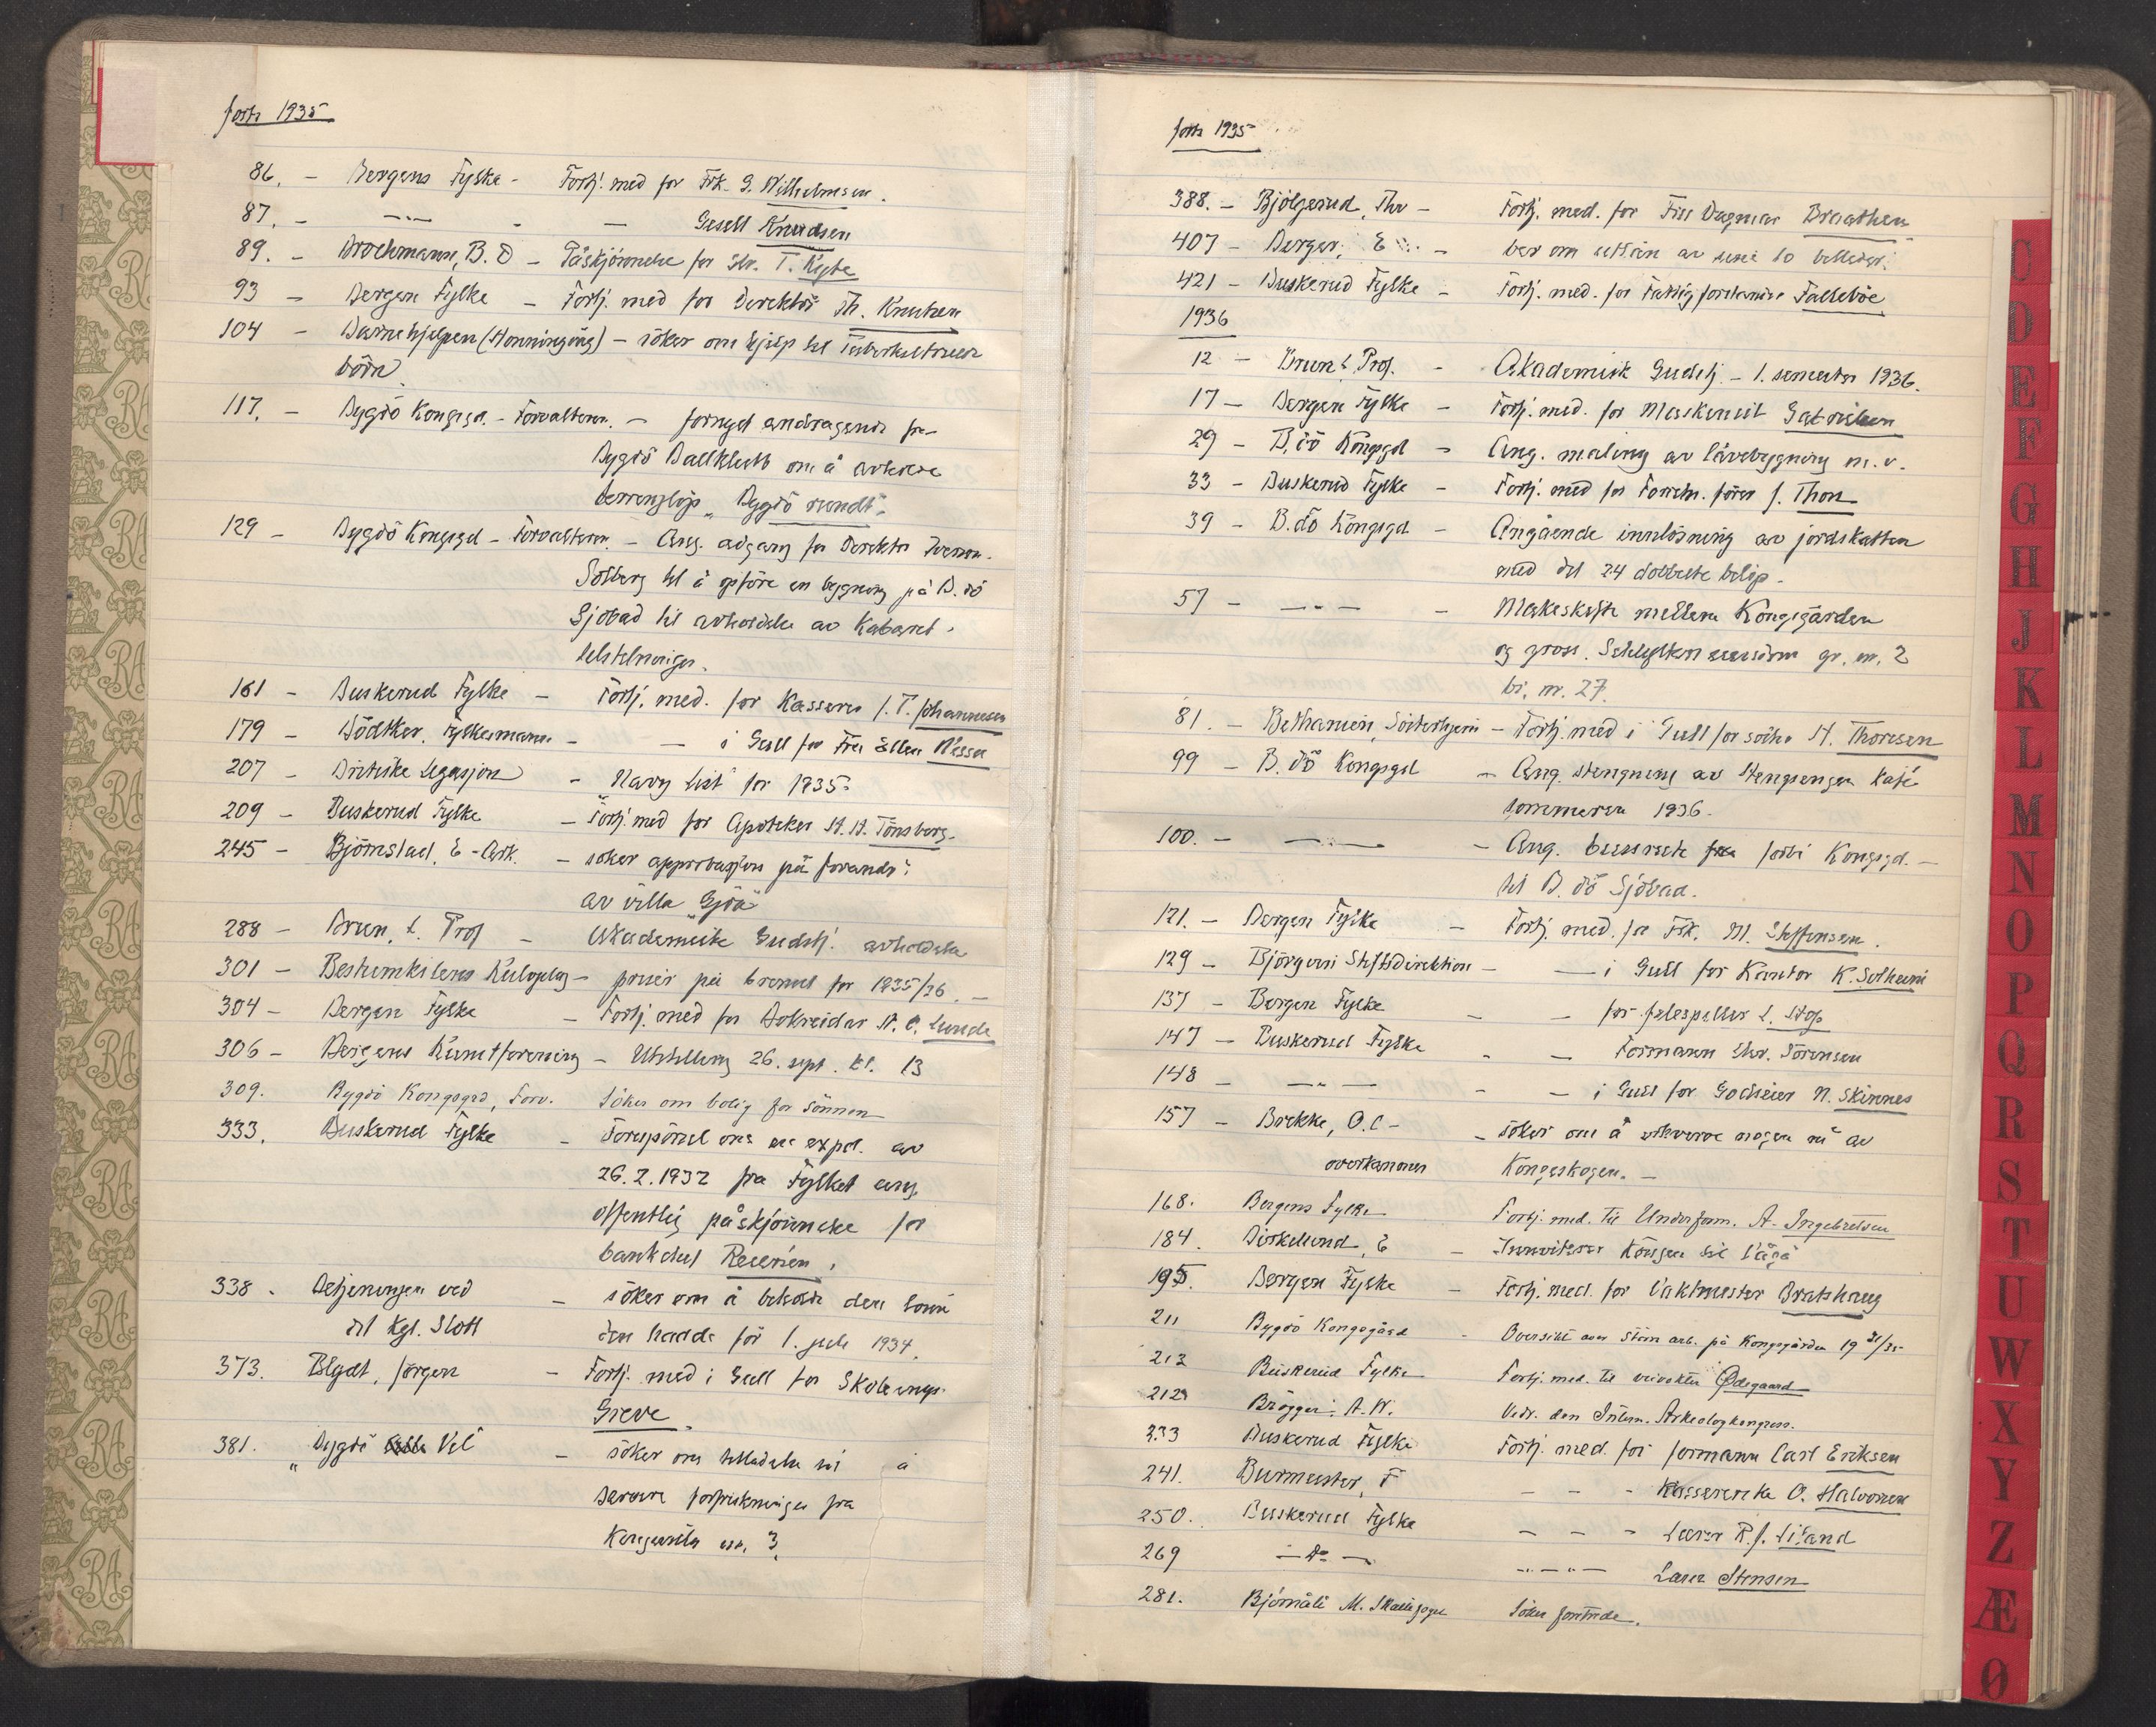 forts 1935
86. - Bergens Fylke - Fortj. med for Frk. G. Wilhelmsen.
87. - —"— - — Gesell Knudsen
89. - Brochmann, B. D - Påskjönnelse for
93 - Bergen Fylke - Fortj. med for Direktör Th. Knutzen
104 - Barnehjelpen (Honningsvåg) - söker om hjelp til Tuberkulöse
börn
117. - Bygdö Kongsgd. - Forvalteren. - fornyet andragende fra
Bygdö Ballklubb om å avholde
terrengløp „Bygdö rundt".
129 - Bygdö Kongsgd - Forvalteren. - Ang. adgang for Direktör
Solberg til å opföre en bygning på B.dö
Sjöbad til avholdelse av Kabaret-
tilstelninger.
161 - Buskerud Fylke - Fortj. med. for Kasserer J. T. Johannesen
179 - Bödtker, Fylkesmann - — i Gull for Fru Ellen
207 - Britiske Legasjon - „Navy List" for 1935.
209 - Buskerud Fylke - Fortj. med for Apoteker H. H. Tönsberg.
245 - Björnstad, E - Ark. - söker approbasjon på forandr:
av villa „Gjöa"
288 - Brun, L. Prof - Akademiske Gudstj. avholdelse
301 - Bestumkilens Kulopplag - priser på brensel for 1935/36. -
304 - Bergen Fylke - Fortj. med for Arbeider H. C. Lunde
306 - Bergens Kunstforening - Utstilling 26. sept. kl. 13
309. Bygdö Kongsgrd, Forv. Söker om bolig for sönnen
333. Buskerud Fylke - Forespörsel om en exped. av
26.2.1932 fra Fylket ang.
offentlig påskjönnelse for
bankchef
338. Betjeningen ved - söker om å beholde den lönn
det Kgl. Slott den hadde för 1. juli 1934.
373. Blydt, Jörgen - Fortj. med i Gull for
Greve.
381. „Bygdö Vel" - söker om tilladelse til å
servere forfriskninger fra
Kongevilla nr. 3.
forts 1935
388. - Bjölgerud, Thv - Fortj. med. for Fru Dagmar Braathen
407 - Berger, E - ber om utlån av sine to billeder.
421 - Buskerud Fylke - Fortj. med. for Fattigforstander Falleböe
1936
12 - Brun L. Prof. - Akademisk Gudstj. - 1. semester 1936.
17 - Bergen Fylke - Fortj. med. for Maskinist Gabrielsen
29 - B.dö Kongsgd - Ang. maling av låvebygning m.v.
33 - Buskerud Fylke - Fortj. med for J. Thon
39 - B.dö Kongsgd - Angående innlösning av jordskatten
med det 24 dobbelte belöp.
57 - —"— - Makeskifte mellem Kongsgården
og gross. eiendom gr. nr. 2
br. nr. 27.
81. - Bethanien, Sösterhjem - Fortj. med i Gull for söster H. Thoresen
99 - B.dö Kongsgd - Ang. stengning av Kafé
sommeren 1936.
100. - —"— - Ang. bussrute forbi Kongsgd. -
til B.dö Sjöbad.
121. - Bergen Fylke - Fortj. med. for Frk. M. Steffensen.
129 - Björgvin Stiftsdirektion - — i Gull for Kantor K. Solheim
137 - Bergen Fylke - — for felespeller L.
147 - Buskerud Fylke - — Formann Chr. Sörensen
148 - —"— - — i Gull for Godseier N. Skinnes
157 - Brekke, O.C - - söker om å erhverve nogen ni av
overkanoner Kongeskogen. -
168. Bergens Fylke Fortj. med. til Underform. A. Ingebretsen
184. Birkelund, E - Innviterer Kongen til Vågå
195. Bergen Fylke - Fortj. med. for Vaktmester Bratshaug
211 Bygdö Kongsgård - Oversikt over större arb. på Kongsgården 19 34/35
212 Buskerud Fylke Fortj. med. til veivokter Ødegaard
212a Brøgger, A. W. Vedr. den Intern. Arkeologkongress.
233 Buskerud Fylke Fortj. med. for formann Carl Eriksen
241. Burmeister, F - - - Kassererske O. Halvorsen
250. Buskerud Fylke - - - Lærer R. J. Liland
269 — do — - - - Lærer Stensen
281. M. Söker foretrede.
C
D
E
F
G
H
J
K
L
M
N
O
P
Q
R
S
T
U
W
X
Y
Z
Æ
Ø